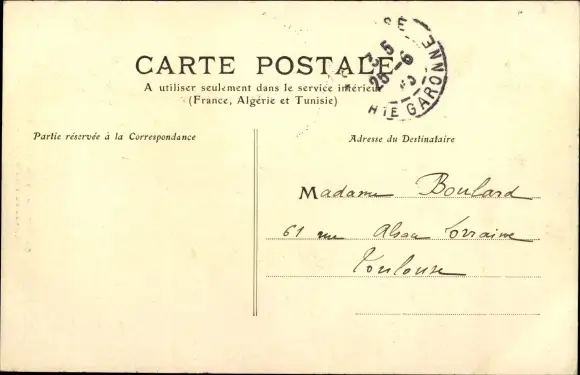 CARTE POSTALE
A utiliser seulement dans le service intérieur
(France, Algérie et Tunisie)
Partie réservée à la Correspondance
Adresse du Destinataire
Madame Boulard
61 rue Alsace Lorraine
Toulouse
HTE GARONNE
25 - 6